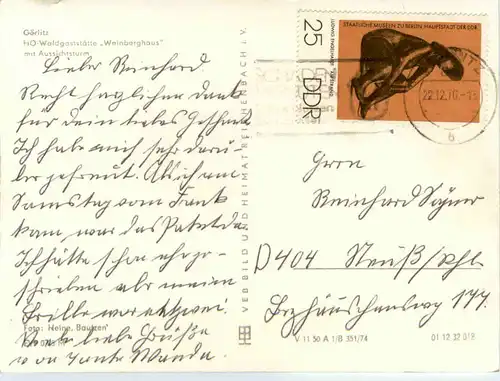 Görlitz
HO-Waldgaststätte „Weinberghaus"
mit Aussichtsturm
Lieber Reinhard.
Recht herzlichen Dank
für dein liebes Geschenk
Ich habe mich sehr darü-
ber gefreut. Als ich am
Samstag vom
kam, war das Paket da.
Ich hätte schon ehr ge-
schrieben aber meine
Brille war entzwei.
Viele liebe Grüße
von Tante Wanda.
Foto: Heine, Bautzen
VEB BILD UND HEIMAT REICHENBACH i. V.
STAATLICHE MUSEEN ZU BERLIN, HAUPTSTADT DER DDR
25
DDR
22.12.76
Herrn
Reinhard
D 404 Neuß/Rhl
177
V 11 50 A 1/B 351/74
01 12 32 019